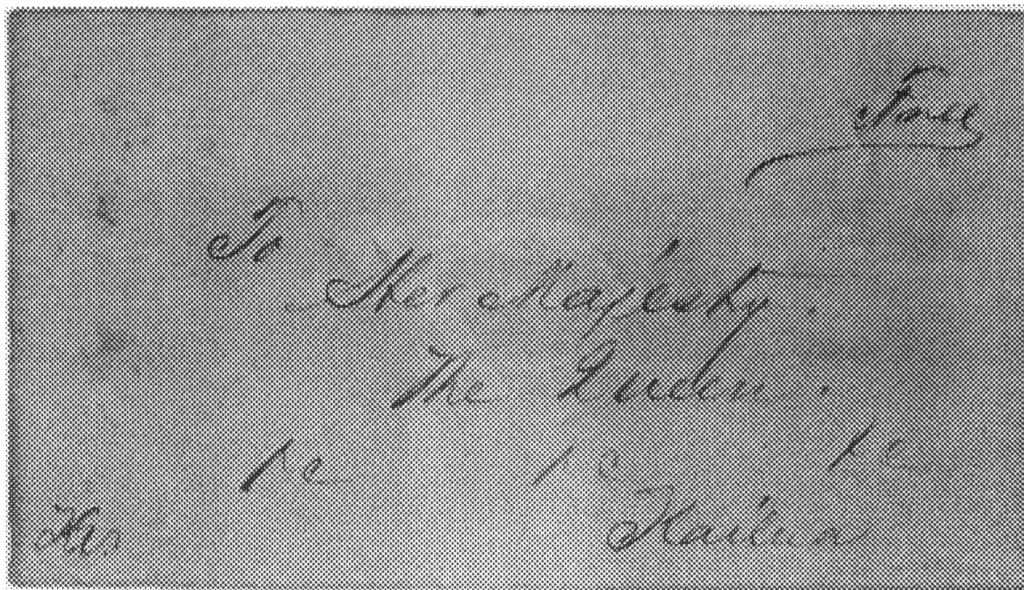 Free
To
Her Majesty.
The Queen.
Kailua